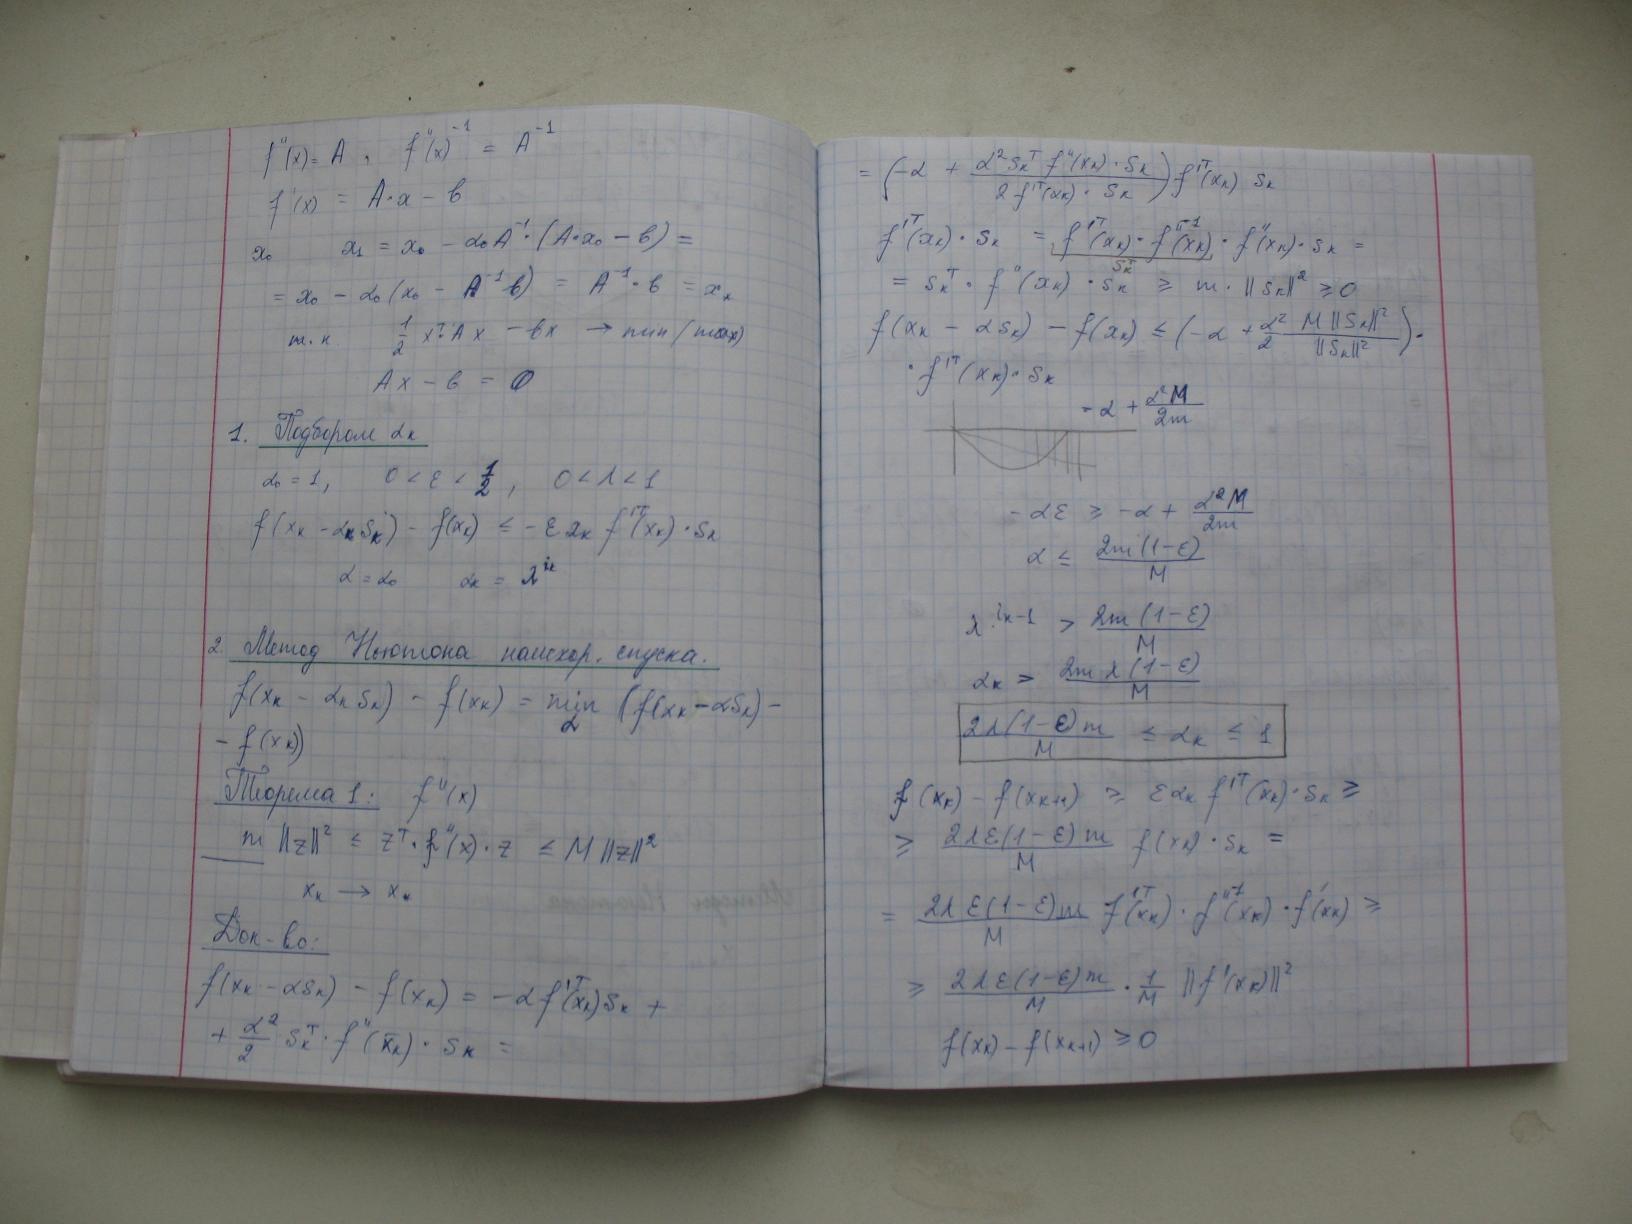 f''(x) = A, f''(x)⁻¹ = A⁻¹
f'(x) = A·x − b
x₀ x₁ = x₀ − α₀A⁻¹·(A·x₀ − b) =
= x₀ − α₀(x₀ − A⁻¹b) = A⁻¹·b = x*
т.к. 1/2 xᵀ·Ax − bx → min (max)
Ax − b = 0
1. Подбором αₖ
α₀ = 1, 0 < ε < 1/2, 0 < λ < 1
f(xₖ − αₖsₖ) − f(xₖ) ≤ −εαₖ f'ᵀ(xₖ)·sₖ
α = α₀ αₖ = λ^iₖ
2. Метод Ньютона наискор. спуска.
f(xₖ − αₖsₖ) − f(xₖ) = min α (f(xₖ − αsₖ) −
− f(xₖ))
Теорема 1: f''(x)
m‖z‖² ≤ zᵀ·f''(x)·z ≤ M‖z‖²
xₖ → x*
Док-во:
f(xₖ − αsₖ) − f(xₖ) = −αf'ᵀ(xₖ)sₖ +
+ α²/2 sₖᵀ·f''(x̄ₖ)·sₖ =
= (−α + α²sₖᵀf''(xₖ)·sₖ / 2f'ᵀ(xₖ)·sₖ) f'ᵀ(xₖ) sₖ
f'ᵀ(xₖ)·sₖ = f'ᵀ(xₖ)·f''⁻¹(xₖ)·f''(xₖ)·sₖ =
sₖᵀ
= sₖᵀ·f''(xₖ)·sₖ ≥ m·‖sₖ‖² ≥ 0
f(xₖ − αsₖ) − f(xₖ) ≤ (−α + α²/2 M‖sₖ‖²/‖sₖ‖²)·
·f'ᵀ(xₖ)·sₖ
−α + α²M/2m
−αε ≥ −α + α²M/2m
α ≤ 2m(1−ε)/M
λ^(iₖ−1) > 2m(1−ε)/M
αₖ > 2mλ(1−ε)/M
2λ(1−ε)m/M ≤ αₖ ≤ 1
f(xₖ) − f(xₖ₊₁) ≥ εαₖ f'ᵀ(xₖ)·sₖ ≥
≥ 2λε(1−ε)m/M f(xₖ)·sₖ =
= 2λε(1−ε)m/M f'ᵀ(xₖ)·f''⁻¹(xₖ)·f'(xₖ) ≥
≥ 2λε(1−ε)m/M · 1/M ‖f'(xₖ)‖²
f(xₖ) − f(xₖ₊₁) ≥ 0